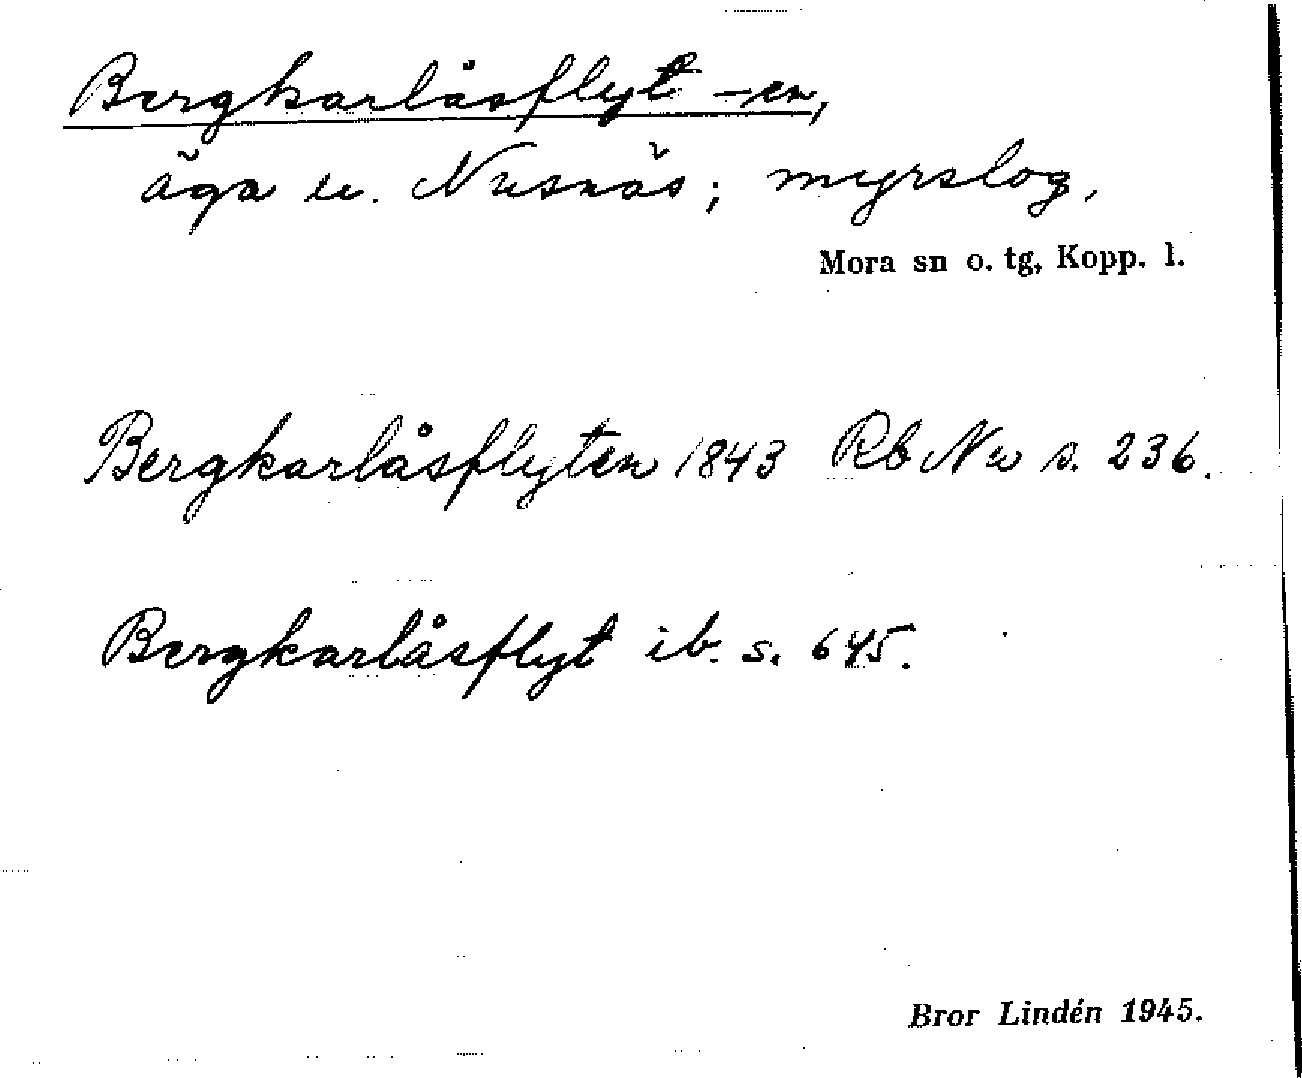 Bergkarlåsflyt -en,
äga u. Nusnäs; myrslog,
Mora sn o. tg, Kopp. l.
Bergkarlåsflyten 1843 Rb Nu s. 236.
Bergkarlåsflyt ib. s. 645.
Bror Lindén 1945.